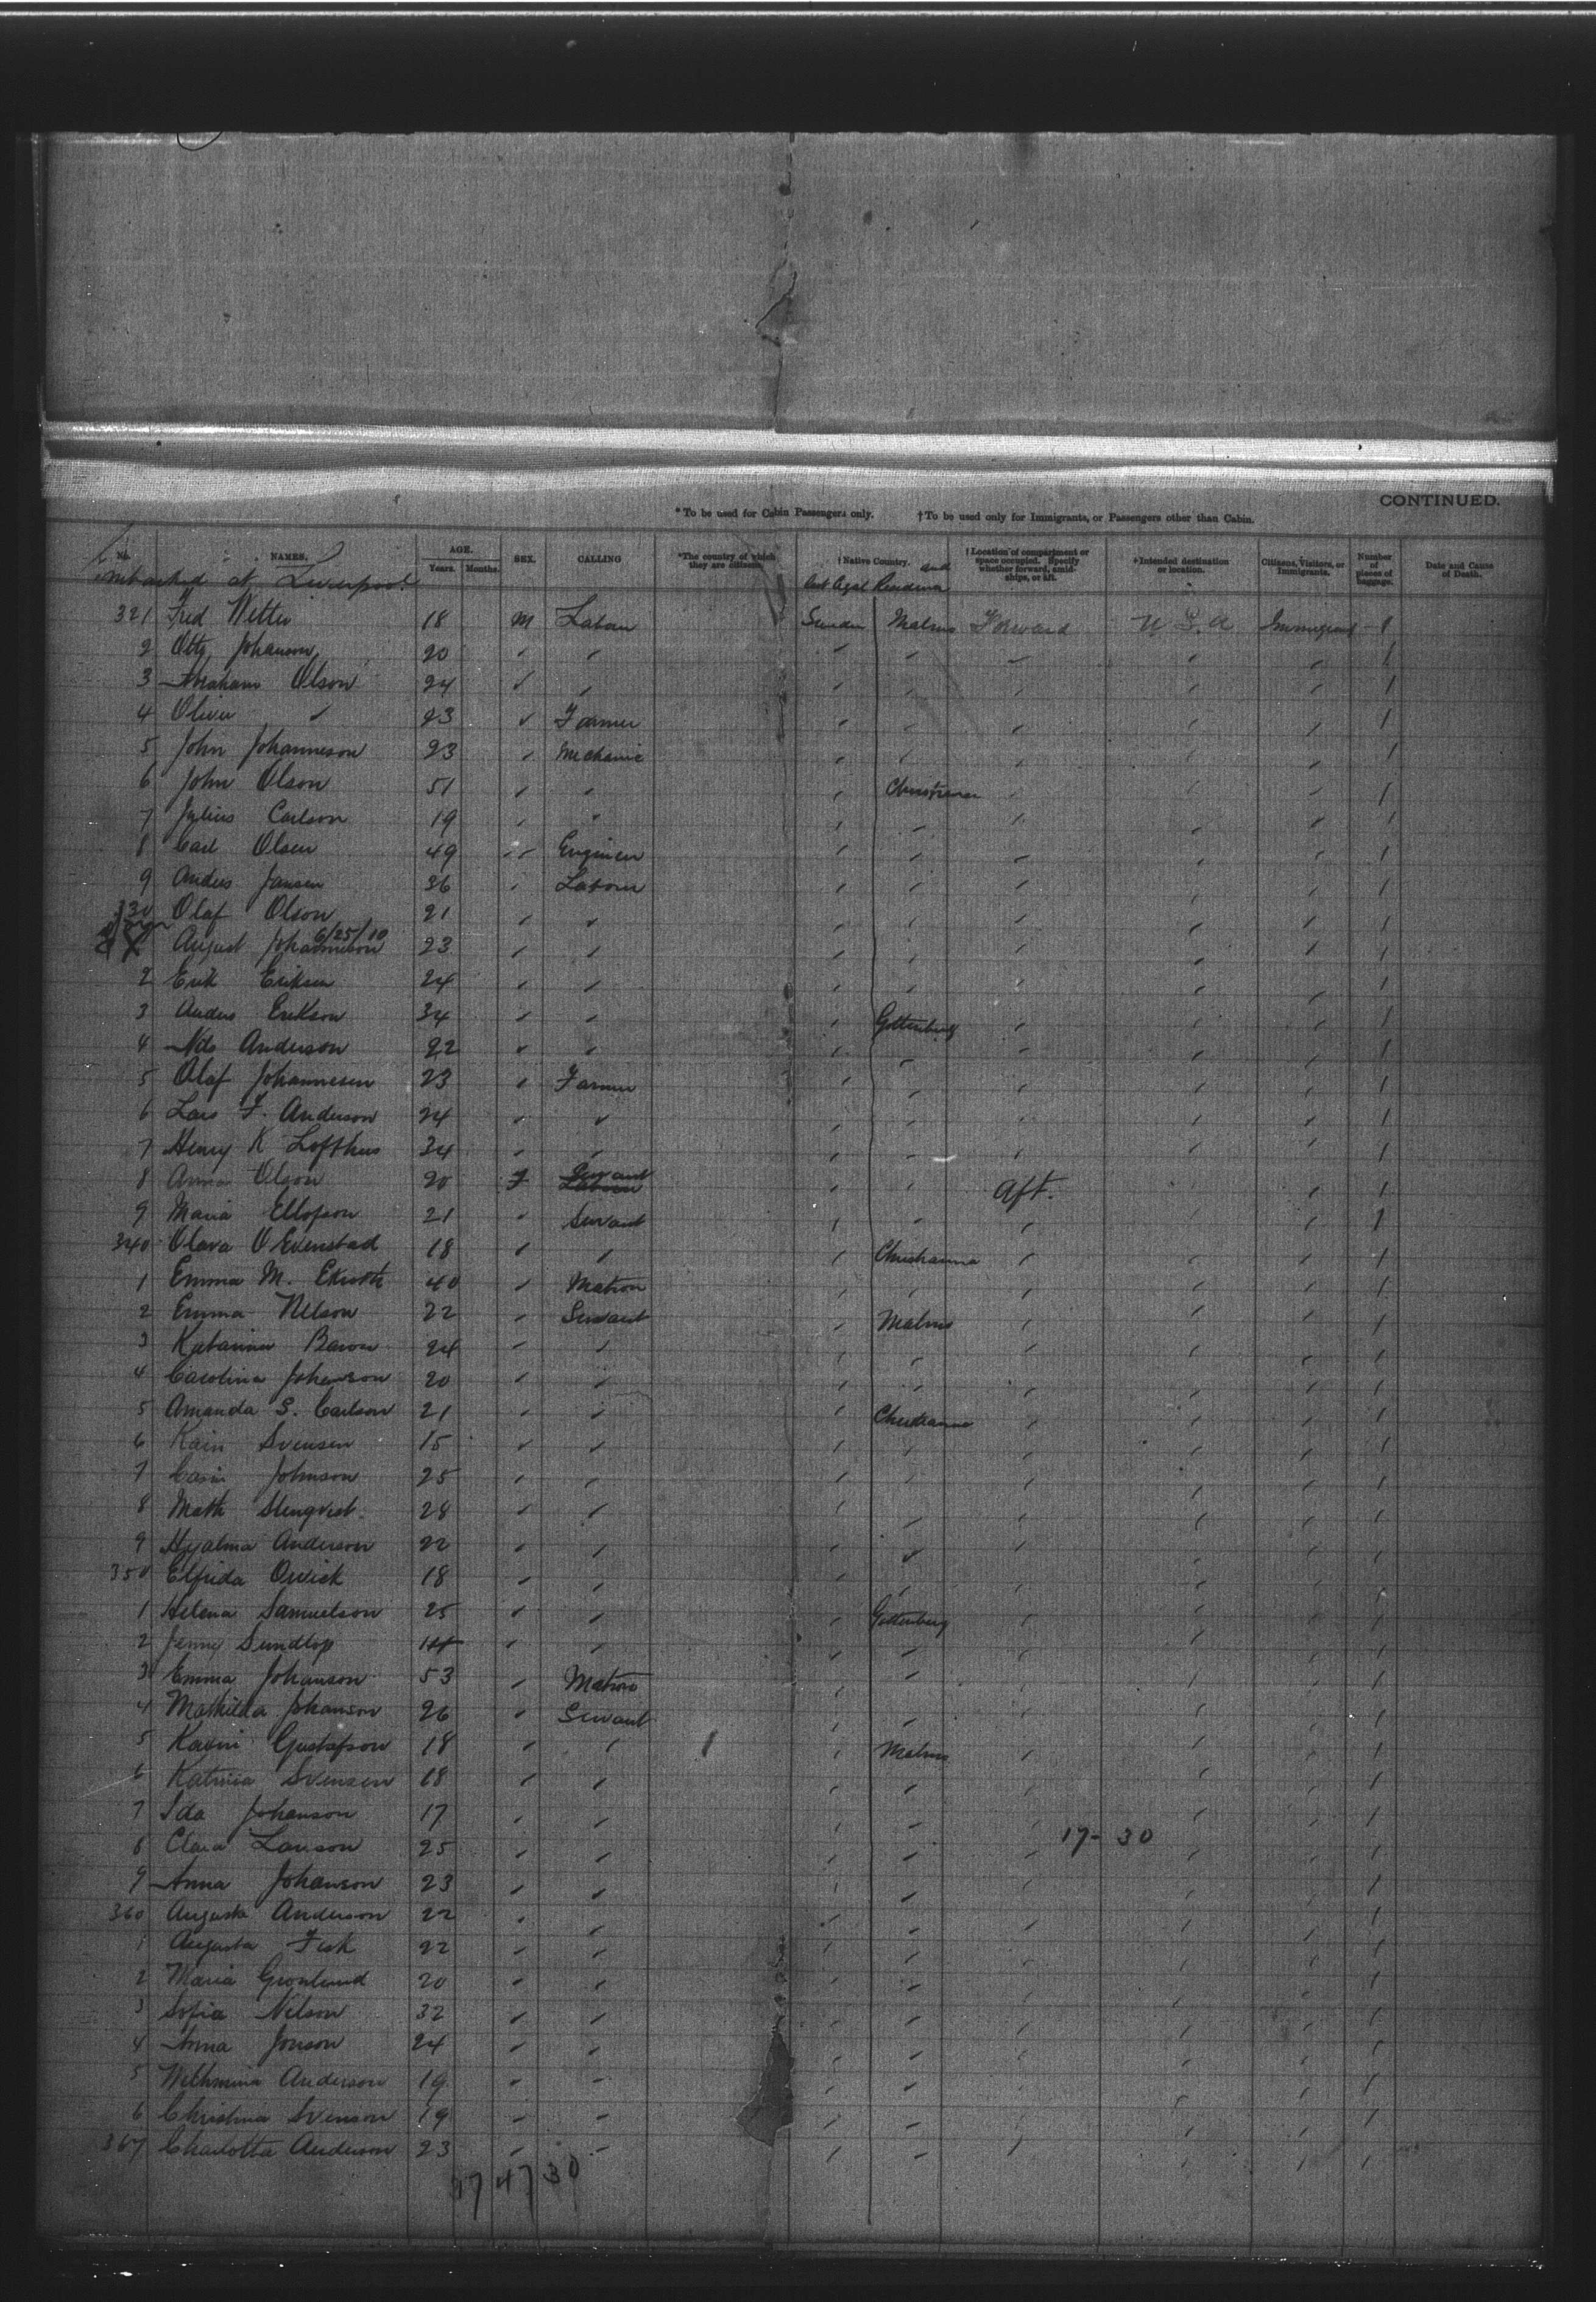 CONTINUED.
* To be used for Cabin Passengers only. † To be used only for Immigrants, or Passengers other than Cabin.
No. NAMES. AGE. Years. Months. SEX. CALLING *The country of which they are citizens. † Native Country. and † Location of compartment or space occupied. Specify whether forward, amidships, or aft. † Intended destination or location. Citizens, Visitors, or Immigrants. Number of pieces of baggage. Date and Cause of Death.
Embarked at Liverpool.
321 Fred Wetter 18 M Labour Sweden Malmo Forward U S A Immigrant 1
2 Otto Johanson 20 " " " " " " " 1
3 Abraham Olson 24 " " " " " " " 1
4 Oliver " 23 " Farmer " " " " " 1
5 John Johanneson 23 " Mechanic " " " " " 1
6 John Olson 51 " " " Christiania " " " 1
7 Julius Carlson 19 " " " " " " " 1
8 Carl Olsen 49 " Engineer " " " " " 1
9 Anders Jansen 36 " Labour " " " " " 1
330 Olaf Olson 21 " " " " " " " 1
6/25/10
August Johanneson 23 " " " " " " " 1
2 Erik Eriksen 24 " " " " " " " 1
3 Anders Erikson 34 " " " Gottenburg " " " 1
4 Nils Anderson 22 " " " " " " " 1
5 Olaf Johannesen 23 " Farmer " " " " " 1
6 Lars F. Anderson 24 " " " " " " " 1
7 Henry K Lofthus 34 " " " " " " " 1
8 Anna Olson 20 F Servant " " Aft. " " 1
9 Maria Ellofson 21 " Servant " " " " " 1
340 Olava O Evenstad 18 " " " Christianna " " " 1
1 Emma M. 40 " Matron " " " " " 1
2 Emma Nelson 22 " Servant " Malmo " " " 1
3 Katarina Baron 24 " " " " " " " 1
4 Carolina Johanson 20 " " " " " " " 1
5 Amanda S. Carlson 21 " " " Christianna " " " 1
6 Karin Svensen 15 " " " " " " " 1
7 Carin Johnson 25 " " " " " " " 1
8 Math Stenqvist 28 " " " " " " " 1
9 Hyalma Anderson 22 " " " " " " " 1
350 Elfrida 18 " " " " " " " 1
1 Helena Samuelson 25 " " " Gottenburg " " " 1
2 Jenny " " " " " " " 1
3 Emma Johanson 53 " Matron " " " " " 1
4 Mathilda Johanson 26 " Servant " " " " " 1
5 Karin Gustafson 18 " " " Malmo " " " 1
6 Katrina Svensen 18 " " " " " " " 1
7 Ida Johanson 17 " " " " " " " 1
17- 30
8 Clara Larsson 25 " " " " " " " 1
9 Anna Johanson 23 " " " " " " " 1
360 Augusta Anderson 22 " " " " " " " 1
1 Augusta Fisk 22 " " " " " " " 1
2 Maria Gronlund 20 " " " " " " " 1
3 Sofia Nelson 32 " " " " " " " 1
4 Anna Jonson 24 " " " " " " " 1
5 Wilhmina Anderson 19 " " " " " " " 1
6 Christina Svenson 19 " " " " " " " 1
367 Charlotta Anderson 23 " " " " " " " 1
17 47 30